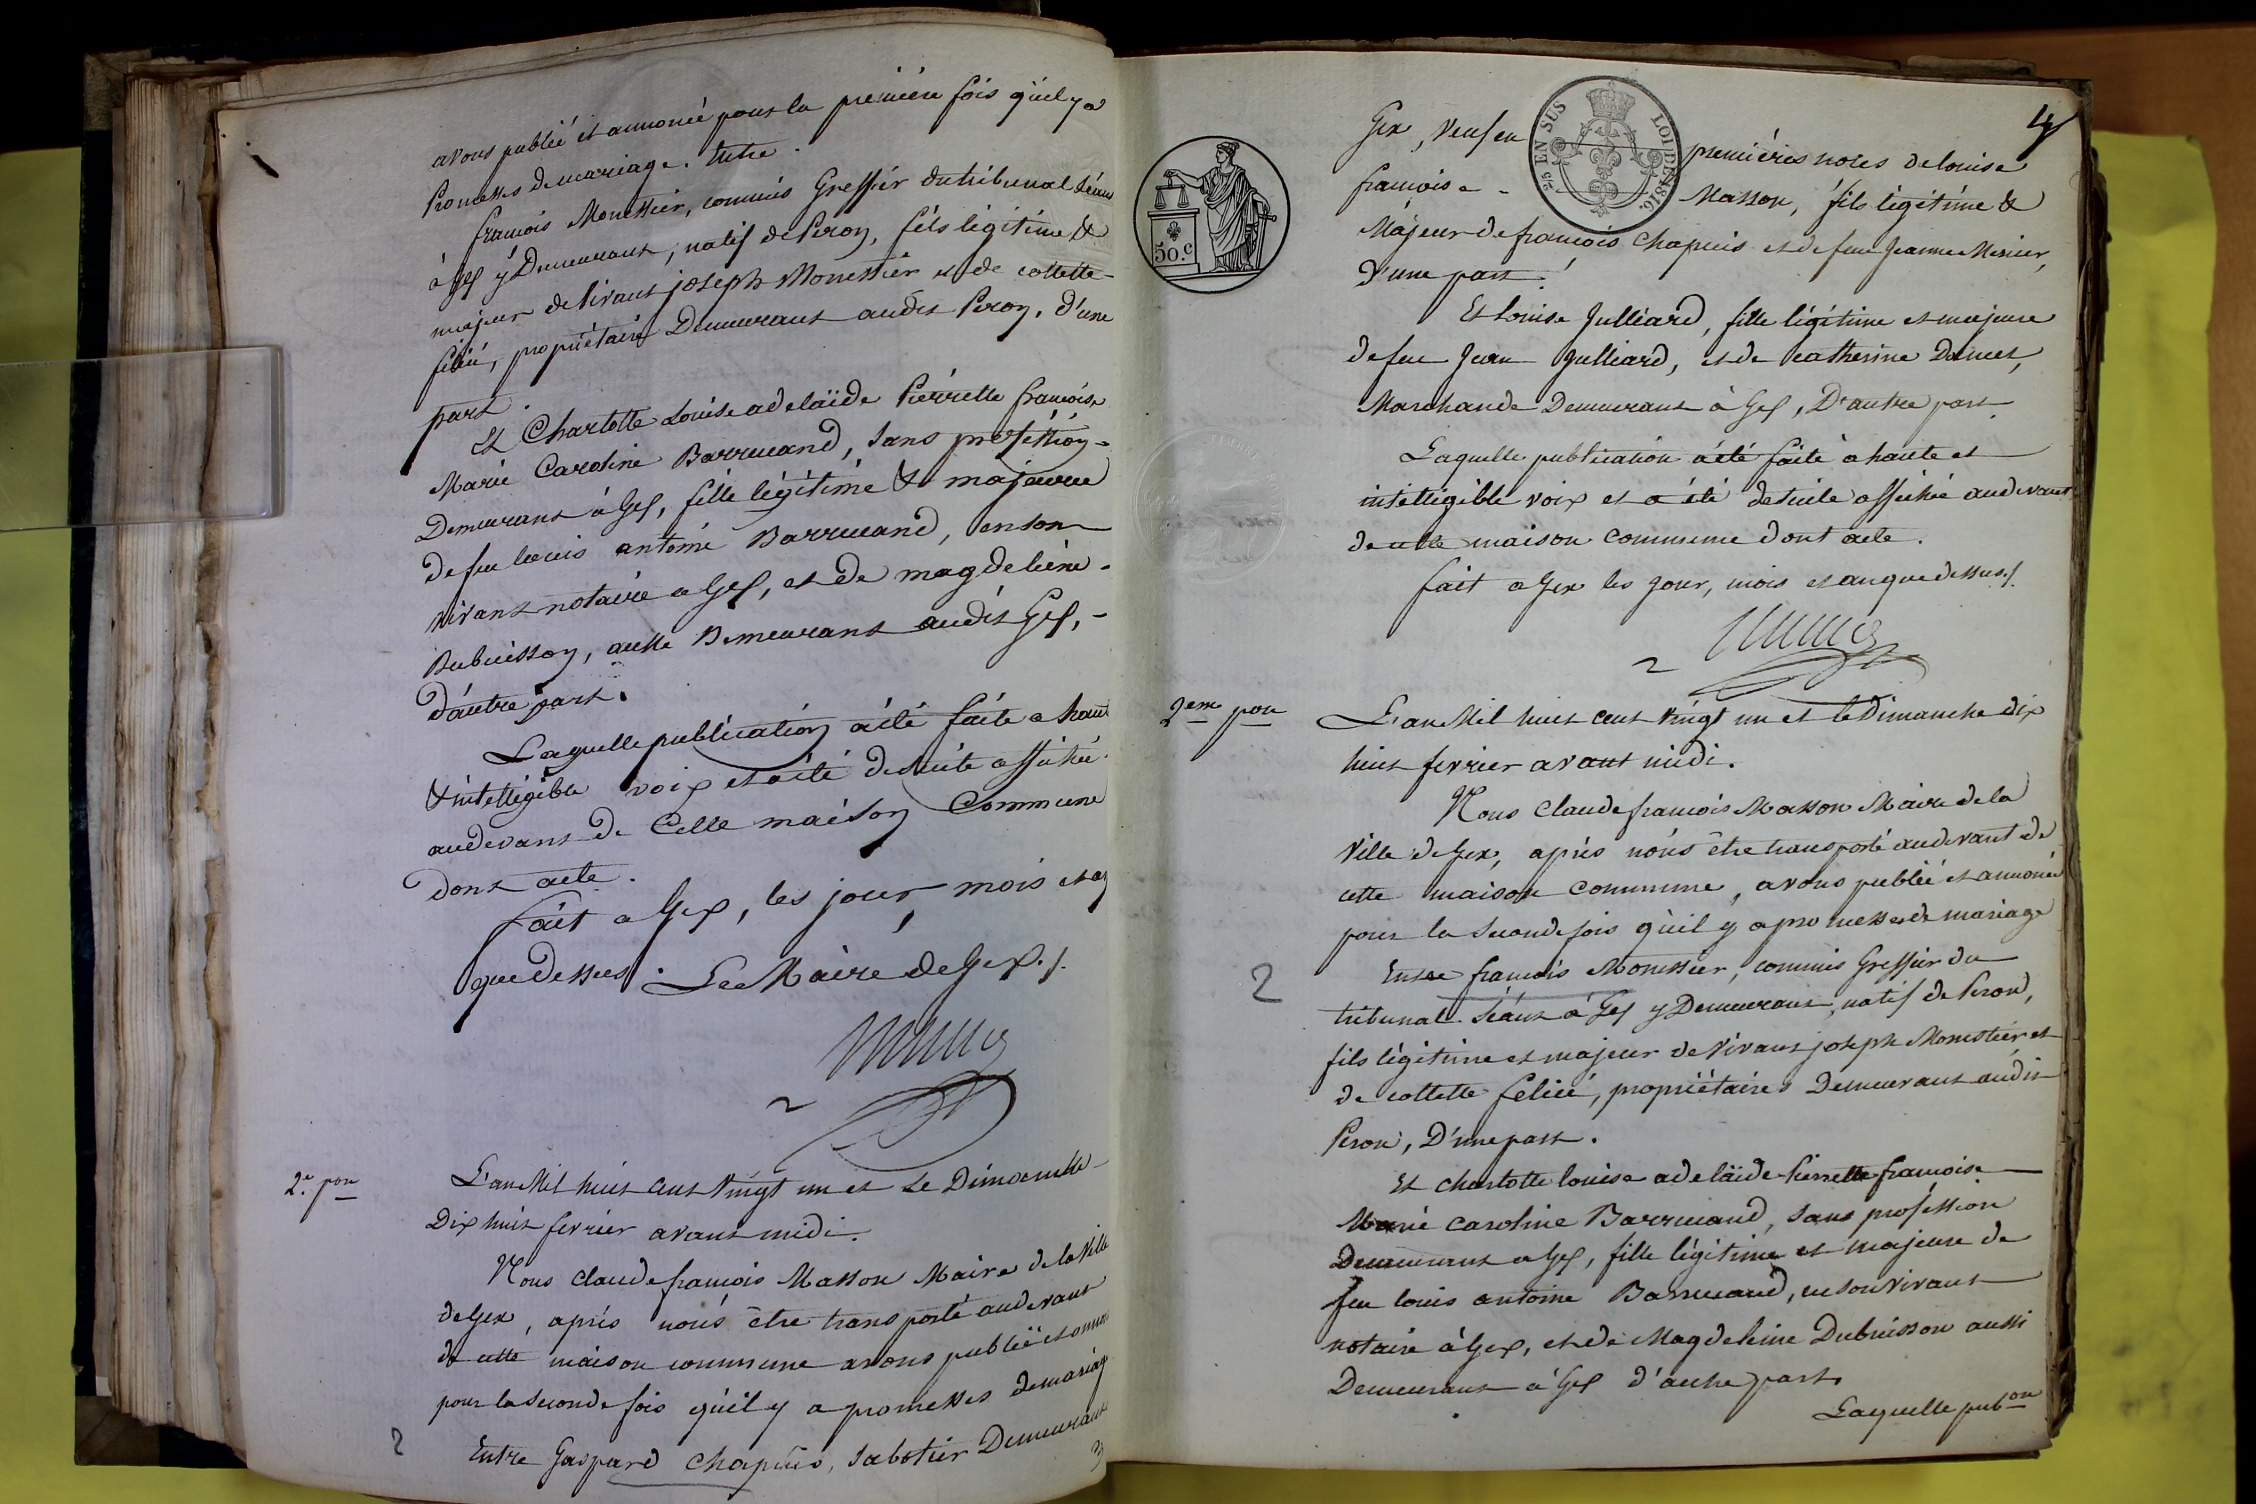 avons publié et annoncé pour la première fois qu'il y a
Promesses de mariage. Entre
françois Monestier, commis Greffier du tribunal séant
à Gex y Demeurant, natif de Peron, fils légitime &
majeur de vivant joseph Monestier et de collette
félicé, propriétaire Demeurant audit Peron, d'une
part.
Et Charlotte Louise adelaïde Pierrette françoise
Marie Caroline Barrucand, sans profession
Demeurant à Gex, fille légitime & majeure
de feu louis antoine Barrucand, en son
vivant notaire a Gex, et de magdeleine
Dubuisson, aussi Demeurant audit Gex,
d'autre part.
Laquelle publication a été faite a haute
& intelligible voix et a été de suite affichée
au devant de Cette maison Commune
dont acte.
fait a Gex, les jour, mois et an
que dessus. Le Maire de Gex./.
2.e pon
L'an Mil huit cent vingt un et le Dimanche
Dix huit fevrier avant midi.
Nous claude françois Masson Maire de la Ville
de Gex, après nous être transporté au devant
de cette maison commune avons publié et annoncé
pour la seconde fois qu'il y a promesses de mariage
2
Entre Gaspard Chapuis, sabotier Demeurant
4
Gex, veuf en premières noces de louise
françoise - Masson, fils légitime &
Majeur de françois Chapuis et de feu Jeanne Mercier,
d'une part.
2/5 EN SUS
LOI DE 1816.
50.c
Et Louise Julliard, fille légitime et majeure
de feu Jean Julliard, et de catherine Dances,
Marchande Demeurant à Gex, D'autre part
Laquelle publication a été faite a haute et
intelligible voix et a été de suite affichée au devant
de cette maison commune dont acte.
fait a Gex les jour, mois et an que dessus./.
2eme pon
L'an Mil huit cent vingt un et le Dimanche dix
huit fevrier avant midi.
Nous claude françois Masson Maire de la
Ville de Gex, après nous être transporté au devant de
cette maison commune, avons publié et annoncé
pour la seconde fois qu'il y a promesses de mariage
2
Entre françois Monestier, commis Greffier du
tribunal séant à Gex y Demeurant, natif de Peron,
fils légitime et majeur de vivant joseph Monestier et
de collette felicé, propriétaires Demeurant audit
Peron, D'une part.
Et charlotte louise adelaïde Pierrette françoise
Marie caroline Barrucand, sans profession
Demeurant a Gex, fille légitime et majeure de
feu louis antoine Barrucand, en son vivant
notaire à Gex, et de Magdeleine Dubuisson aussi
Demeurant à Gex d'autre part.
Laquelle pubon